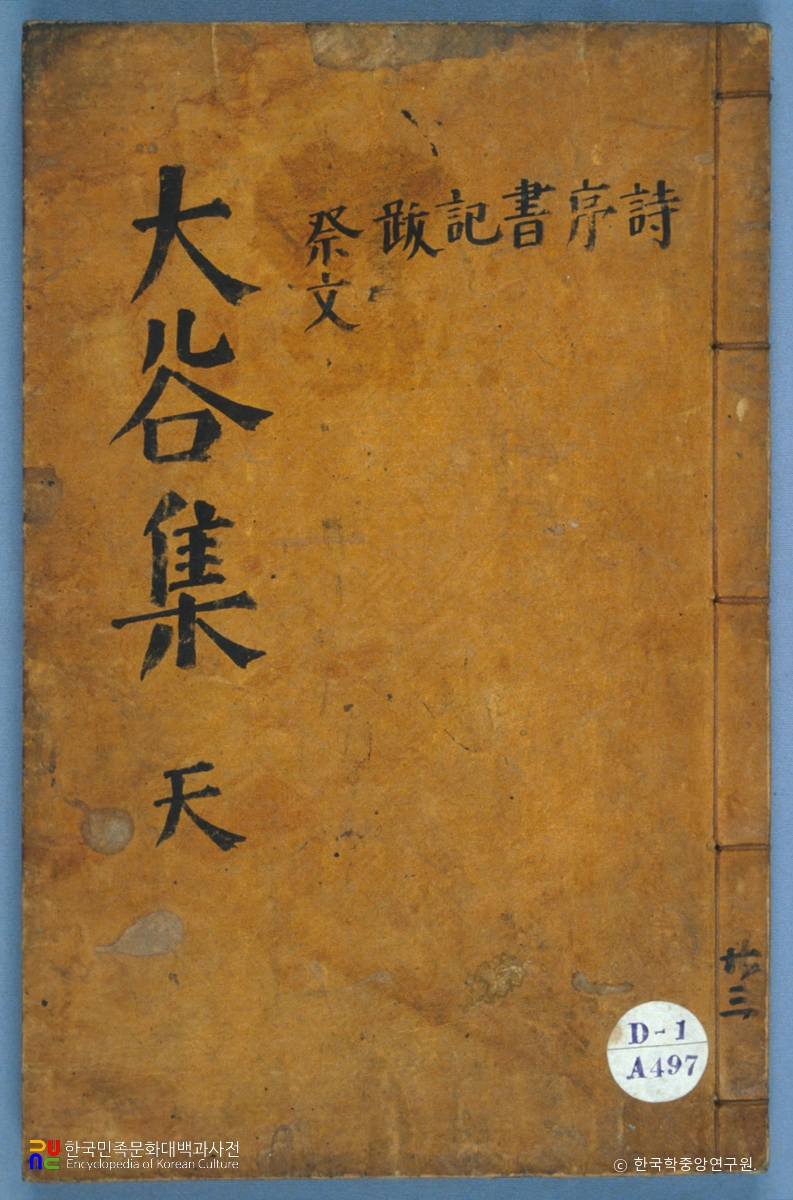 詩
序
書
記
跋
祭文
大谷集 天
共三
D-1
A497
한국민족문화대백과사전
Encyclopedia of Korean Culture
© 한국학중앙연구원